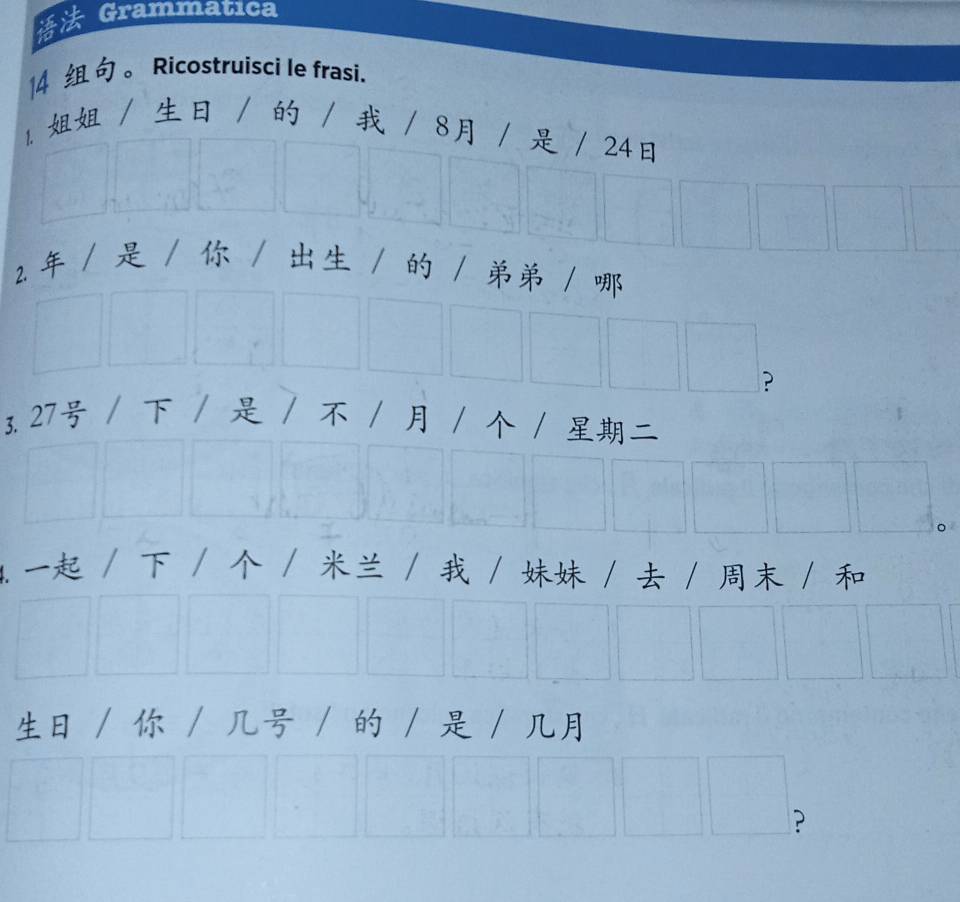 语法 Grammatica
14 组句。 Ricostruisci le frasi.
1. 姐姐 / 生日 / 的 / 我 / 8月 / 是 / 24日
2. 年 / 是 / 你 / 出生 / 的 / 弟弟 / 哪
?
3. 27号 / 下 / 是 / 不 / 月 / 个 / 星期二
。
4. 一起 / 下 / 个 / 米兰 / 我 / 妹妹 / 去 / 周末 / 和
生日 / 你 / 几号 / 的 / 是 / 几月
?